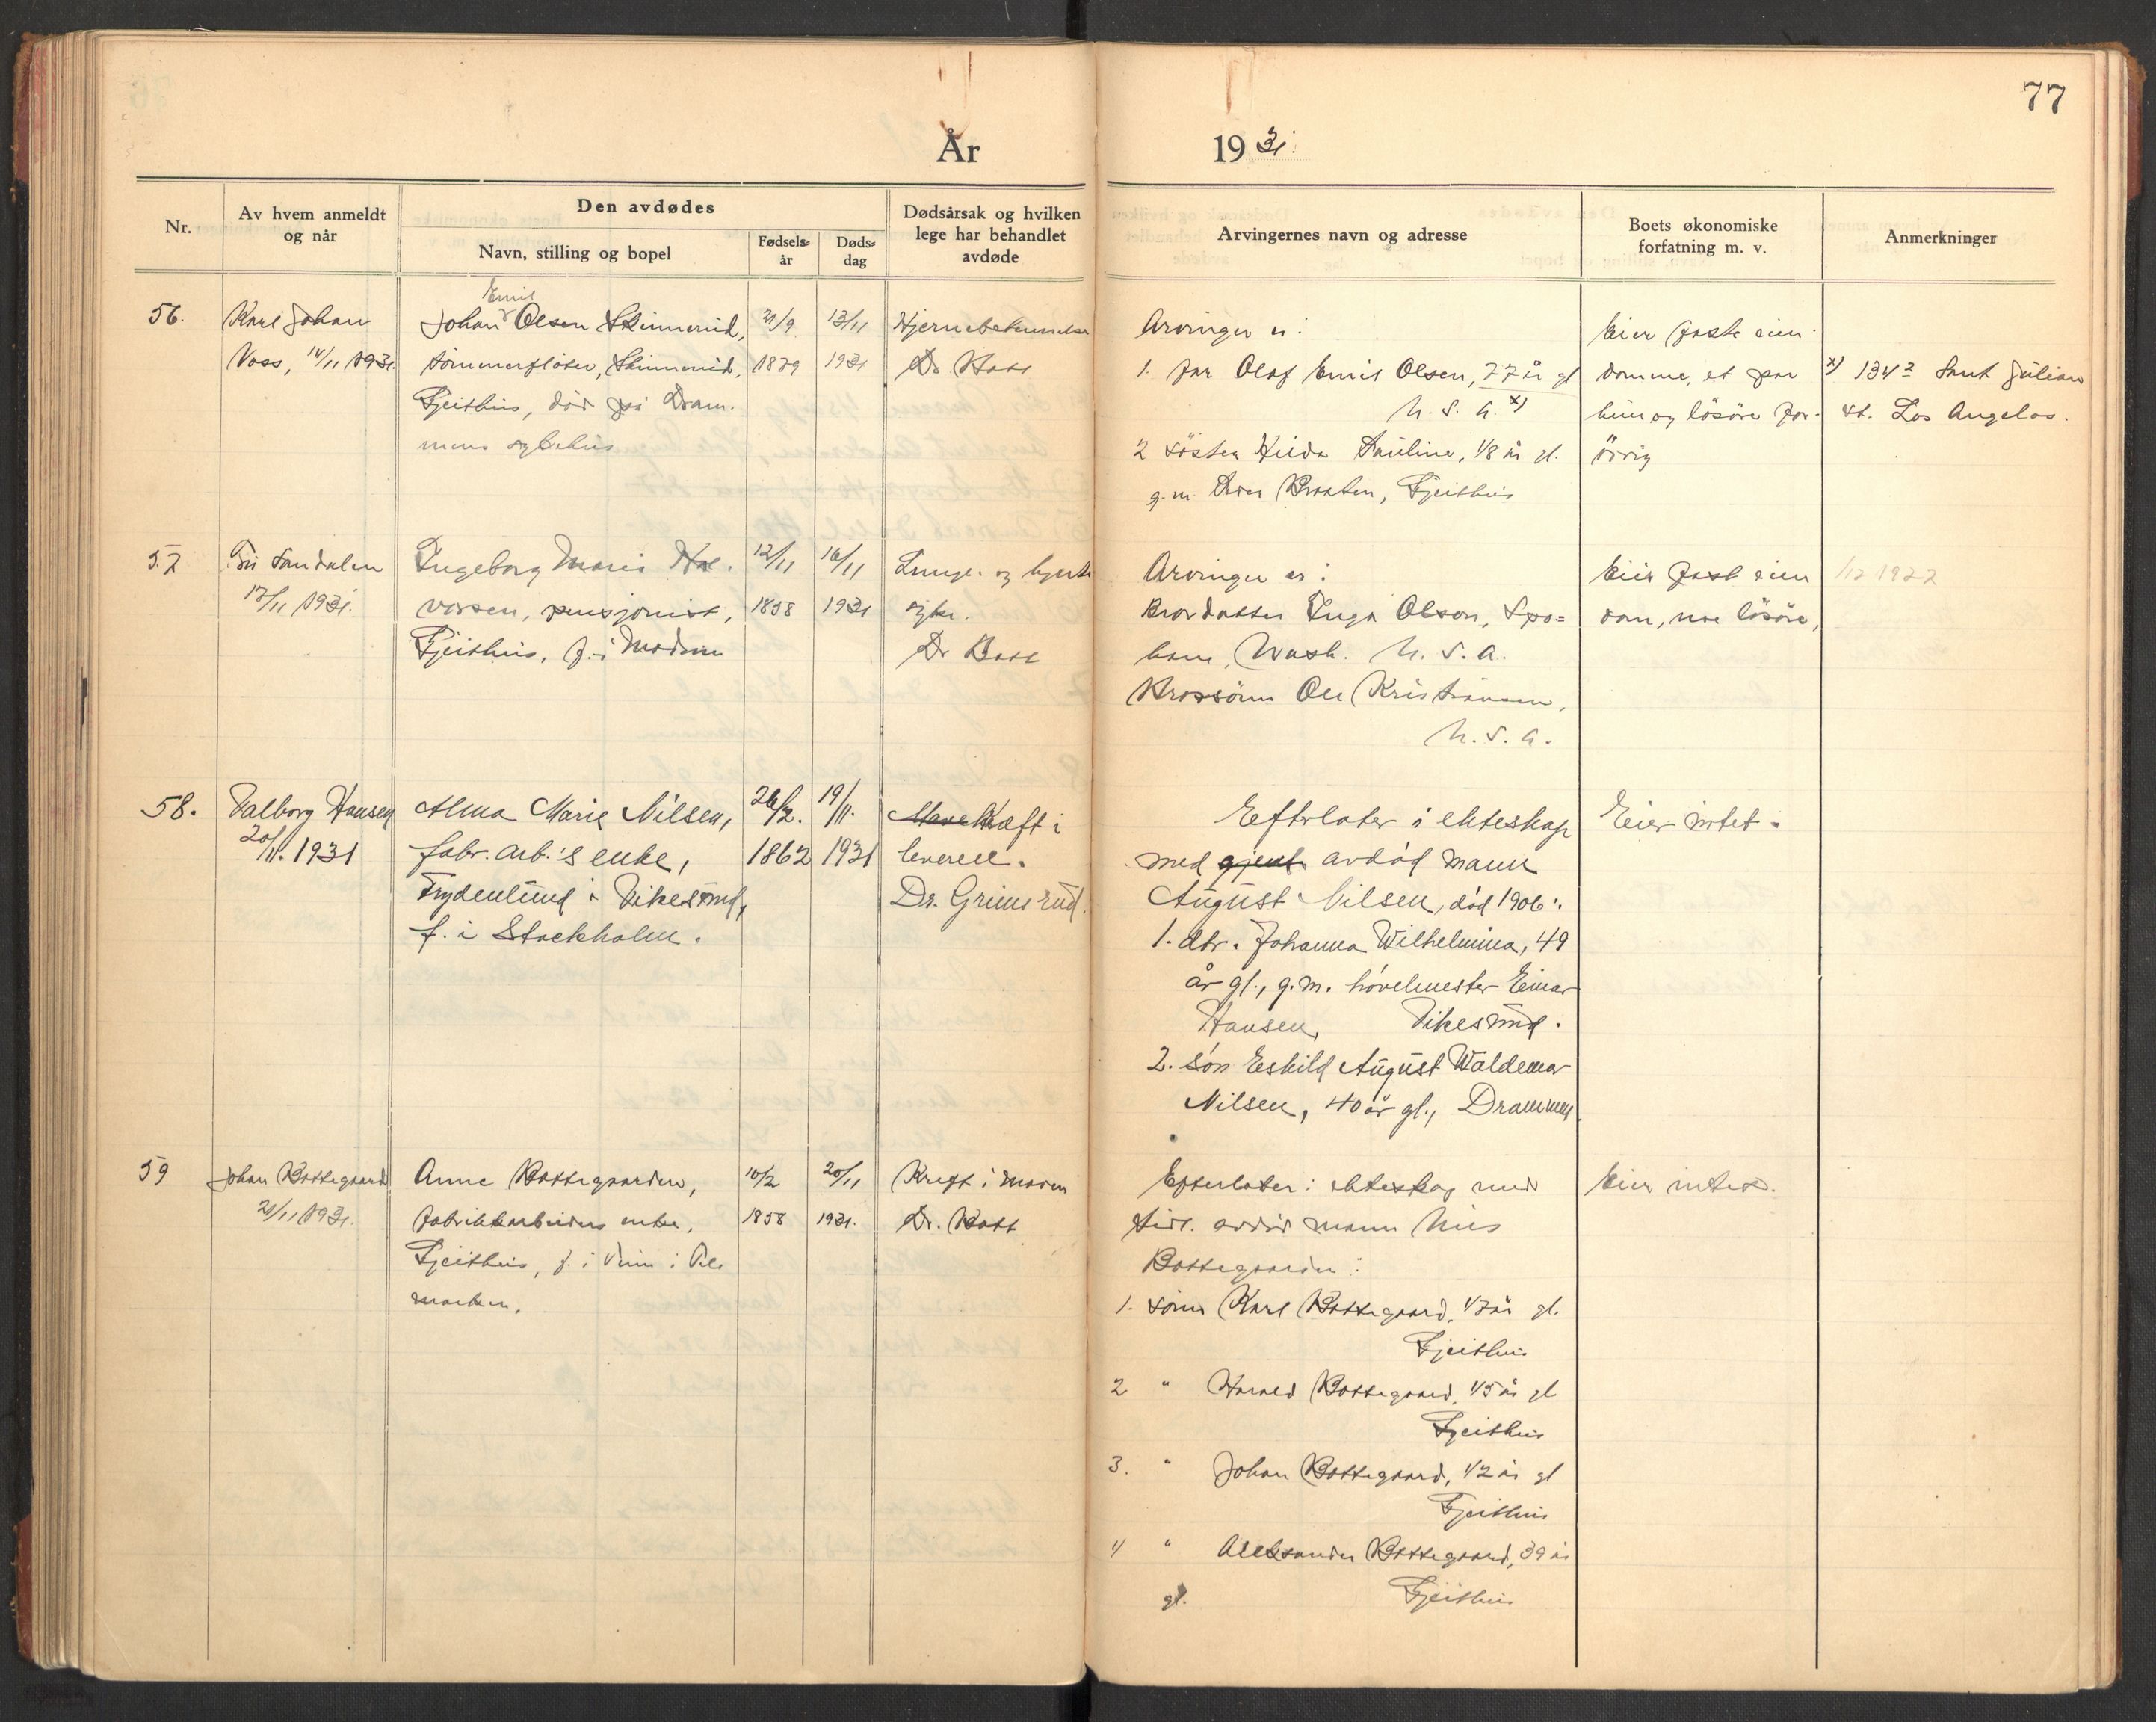 77
År 1931.
Nr.
Av hvem anmeldt
og når
Den avdødes
Navn, stilling og bopel
Fødsels-
år
Døds-
dag
Dødsårsak og hvilken
lege har behandlet
avdøde
Arvingernes navn og adresse
Boets økonomiske
forfatning m. v.
Anmerkninger
56.
Karl Johan
Voss, 14/11 1931.
Emil
Johan Olsen Skinnerud,
tømmerfløter, Skinnerud,
Gjeithus, død på Dram-
mens sykehus
21/9
1879
13/11
1931
Hjernebetennelse
Dr Bøtt
Arvinger er:
1. far Olaf Emil Olsen, 77 år gl
U. S. A. x)
2 søster Hilda Pauline, 48 år gl.
g. m. Braaten, Gjeithus
Eier faste eien-
domme, et par
hus og løsøre for-
øvrig
x) 134 2 Sant Julian
st. Los Angelos.
57
Sandalen
17/11 1931.
Ingeborg Marie Hal-
vorsen, pensjonist,
Gjeithus, f. i Modum
12/11
1858
16/11
1931
Lunge- og hjerte
syke.
Dr Bøtt
Arvinger er:
Brordatter Inga Olson, Spo=
kane, Wash. U. S. A.
Brorsønn Ole Kristiansen,
U. S. A.
Eier fast eien
dom, noe løsøre,
58.
Valborg Hansen
20/11. 1931
Alma Marie Nilsen,
fabr. arb.'s enke,
Frydenlund i Vikesund,
f. i Stockholm.
26/2.
1862
19/11.
1931
Mave Kræft i
leveren.
Dr. Grimsrud.
Efterlater i ekteskap
med gjenl. avdød mann
August Nilsen, død 1906:
1. dtr. Johanna Wilhelmina, 49
år gl., g. m. høvelmester Einar
Hansen, Vikesund.
2. Søn Eskild August Waldemar
Nilsen, 40 år gl., Drammen
Eier intet.
59
Johan Bottegaard
21/11 1931.
Anne Bottegaarden,
fabrikkarbeiders enke,
Gjeithus, f. i Vinje i Tele
marken.
10/2
1858
20/11
1931.
Kreft i maven
Dr. Bøtt
Efterlater i ekteskap med
tidl. avdød mann Nils
Bottegaarden:
1. sønn Karl Bottegaard, 47 år gl.
Gjeithus
2 " Harald Bottegaard, 45 år gl
Gjeithus
3. " Johan Bottegaard, 42 år gl
Gjeithus
4 " Aleksander Bottegaard, 39 år
gl. Gjeithus
Eier intet.